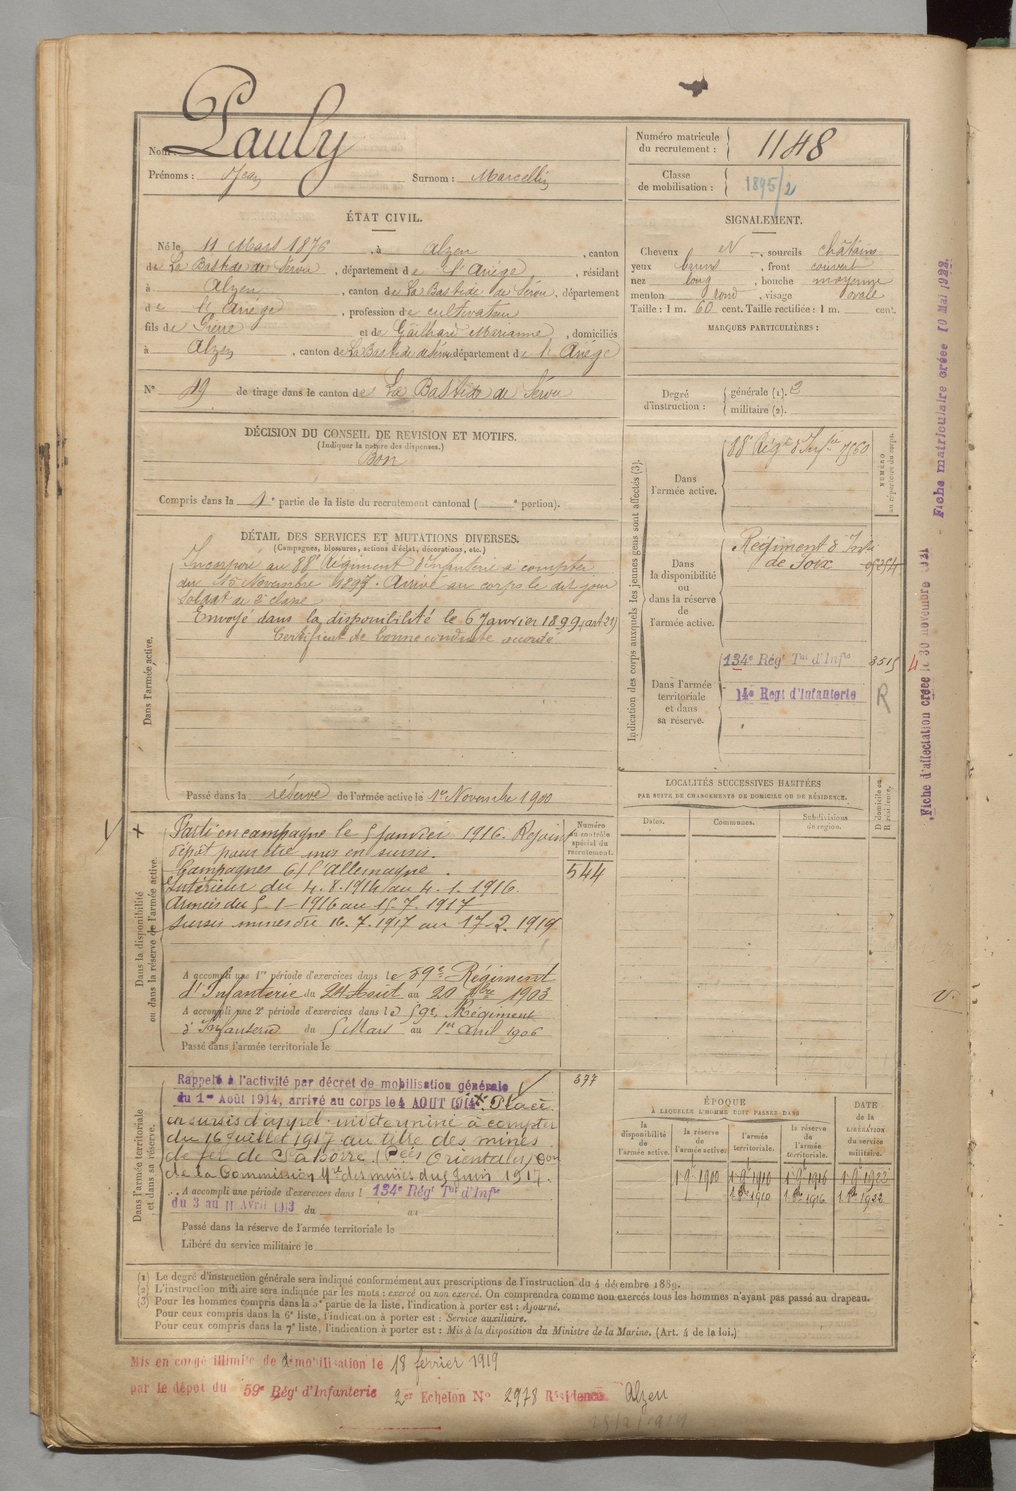 Nom : Pauly
Prénoms : Jean Surnom : Marcellin
Numéro matricule du recrutement : 1148
Classe de mobilisation : 1895/2
ÉTAT CIVIL.
Né le 11 Mars 1876, à Alzen, canton
de La Bastide de Sérou, département de l'Ariége, résidant
à Alzen, canton de La Bastide de Sérou, département
de l'Ariége, profession de cultivateur
fils de Pierre et de Gailhard Marianne, domiciliés
à Alzen, canton de La Bastide de Sérou département de l'Ariége
N° 19 de tirage dans le canton de La Bastide de Sérou
SIGNALEMENT.
Cheveux N, sourcils châtains
yeux bruns, front couvert
nez long, bouche moyenne
menton rond, visage ovale
Taille : 1 m. 60 cent. Taille rectifiée : 1 m. cent.
MARQUES PARTICULIÈRES :
Degré d'instruction : générale (1). 2
militaire (2).
DÉCISION DU CONSEIL DE REVISION ET MOTIFS.
(Indiquer la nature des dispenses.)
Bon
Compris dans la 1e partie de la liste du recrutement cantonal ( e portion).
DÉTAIL DES SERVICES ET MUTATIONS DIVERSES.
(Campagnes, blessures, actions d'éclat, décorations, etc.)
Dans l'armée active.
Incorporé au 88e Régiment d'infanterie à compter
du 15 Novembre 1897. Arrivé au corps le dit jour
Soldat de 2e classe
Envoyé dans la disponibilité le 6 Janvier 1899 (art 21)
Certificat de bonne conduite accordé
Passé dans la réserve de l'armée active le 1er Novembre 1900
Indication des corps auxquels les jeunes gens sont affectés (3).
NUMÉRO au répertoire du corps.
Dans l'armée active.
88e Régt d'Infrie 7560
Dans la disponibilité ou dans la réserve de l'armée active.
Régiment d'Infie
de Foix
Dans l'armée territoriale et dans sa réserve.
134e Régt Tal d'Infie 3515
14e Regt d'Infanterie R
LOCALITÉS SUCCESSIVES HABITÉES
PAR SUITE DE CHANGEMENTS DE DOMICILE OU DE RÉSIDENCE.
Dates. Communes. Subdivisions de région. D domicile ou R résidence.
Dans la disponibilité ou dans la réserve de l'armée active.
Parti en campagne le 5 Janvier 1916. Rejoint
dépôt pour être mis en sursis.
Campagnes c/ l'Allemagne.
Intérieur du 4.8.1914 au 4.1.1916.
Armées du 5-1-1916 au 15.7.1917
Sursis mines du 16.7.1917 au 17-2.1919
Numéro au contrôle spécial du recrutement.
544
A accompli une 1re période d'exercices dans le 59e Régiment
d'Infanterie du 24 Août au 20 7bre 1903
A accompli une 2e période d'exercices dans le 59e Régiment
d'Infanterie du 5 Mars au 1er Avril 1906
Passé dans l'armée territoriale le
Dans l'armée territoriale et dans sa réserve.
Rappelé à l'activité par décret de mobilisation générale
du 1er Août 1914, arrivé au corps le 4 AOUT 1914. Placé
en sursis d'appel indéterminé à compter
du 16 Juillet 1917 au titre des mines
de fer de Sahorre (Pées Orientales) Don
de la Commission Mre des mines du 9 Juin 1917.
A accompli une période d'exercices dans l 134e Régt Tal d'Infie
du 3 au 11 Avril 1913 du au
Passé dans la réserve de l'armée territoriale le
Libéré du service militaire le
577
ÉPOQUE
À LAQUELLE L'HOMME DOIT PASSER DANS
la disponibilité de l'armée active. la réserve de l'armée active. l'armée territoriale. la réserve de l'armée territoriale. DATE de la LIBÉRATION du service militaire.
1-9-1900 1-9-1910 1-9-1916 1-9-1922
(1) Le degré d'instruction générale sera indiqué conformément aux prescriptions de l'instruction du 4 décembre 1889.
(2) L'instruction militaire sera indiquée par les mots : exercé ou non exercé. On comprendra comme non exercés tous les hommes n'ayant pas passé au drapeau.
(3) Pour les hommes compris dans la 5e partie de la liste, l'indication à porter est : Ajourné.
Pour ceux compris dans la 6e liste, l'indication à porter est : Service auxiliaire.
Pour ceux compris dans la 7e liste, l'indication à porter est : Mis à la disposition du Ministre de la Marine. (Art. 4 de la loi.)
Mis en congé illimité de démobilisation le 18 février 1919
par le dépot du 59e Régt d'Infanterie 2me Echelon No 2978 Résidence Alzen
25/2/1919
Fiche d'affectation créée le 30 novembre 1931
Fiche matriculaire créée 10 Mai 1922.